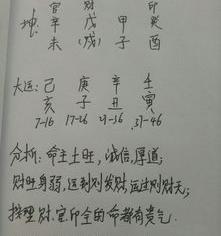 官 财 印
坤: 辛 戊 甲 癸
未 (戌) 子 酉
大运: 己 庚 辛 壬
亥 子 丑 寅
7-16 17-26 27-36 37-46
分析: 命主土旺, 诚信, 厚道;
财旺身弱, 运到则发财, 运过则财天;
按理财、官印全的命都有贵气.